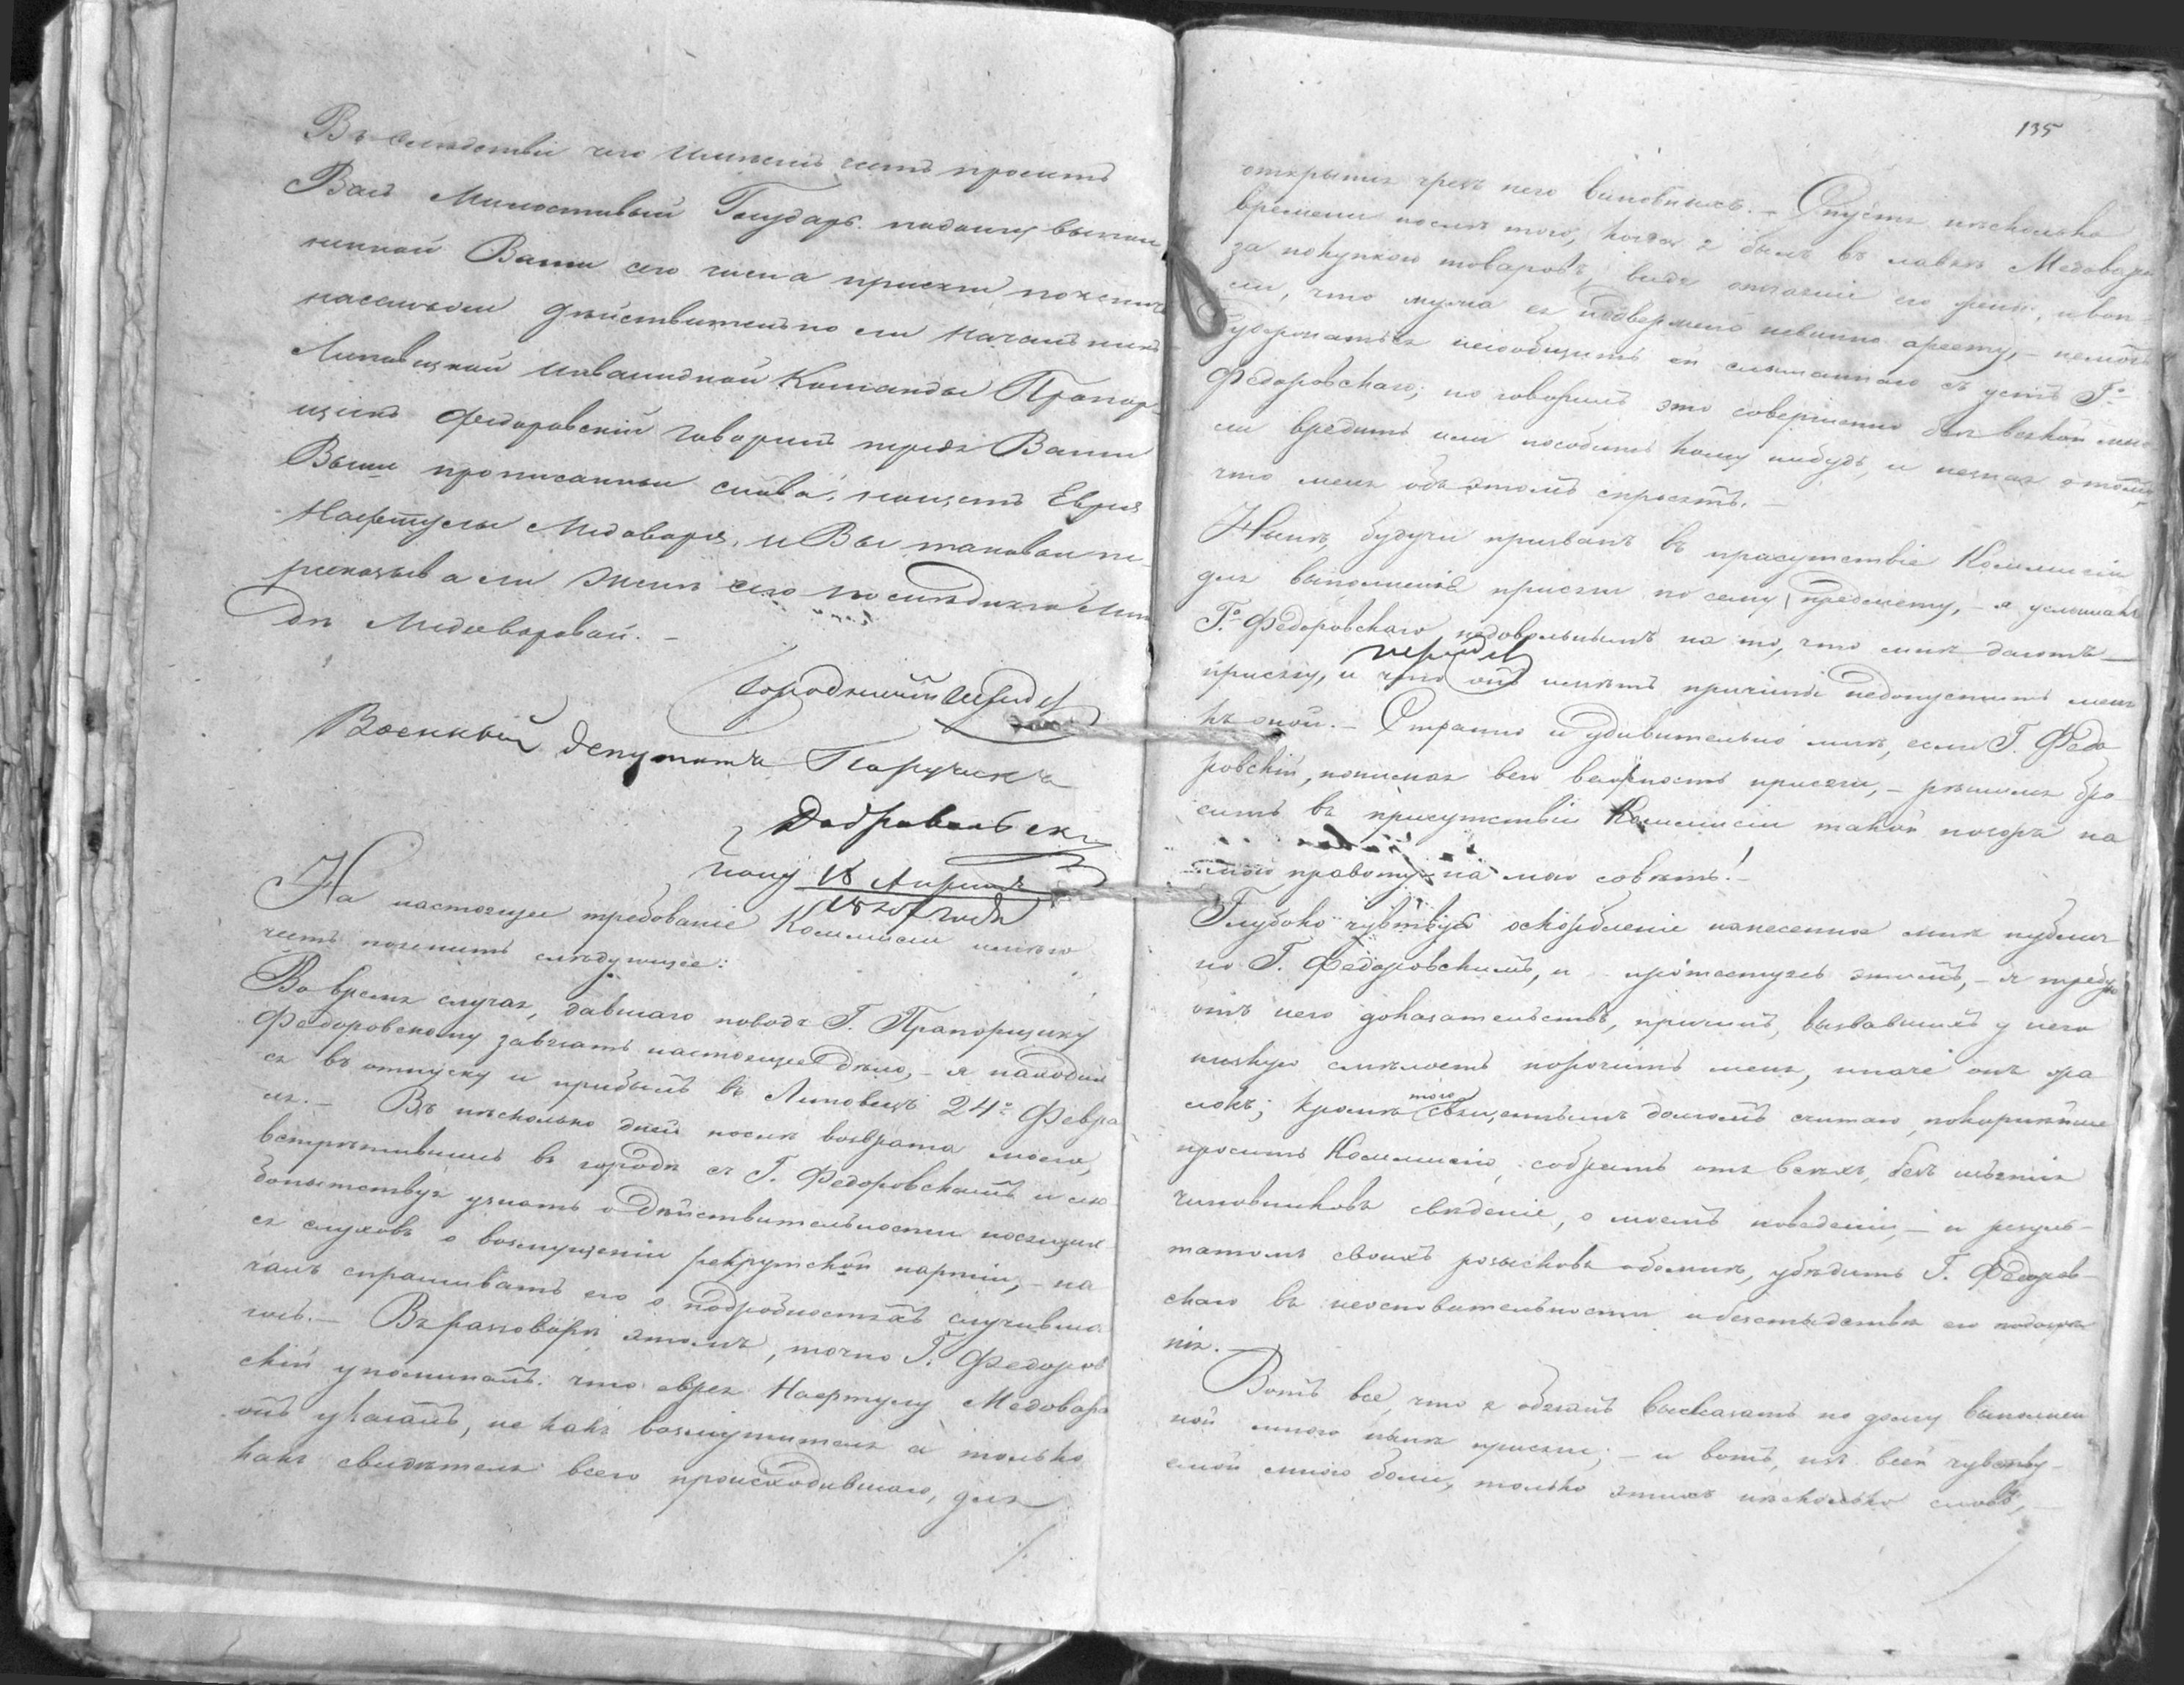 Въ следствіи чего имѣемъ честь просить
Васъ Милостивый Государь. надолгу выпол
ненной Вами сего числа присяги, пояснить
насколько дѣйствительно ли Начальникъ
Липовецкой инвалидной Команды Прапор-
щикъ Федоровскій говорилъ передъ Вами
Выше прописанныя слова, насчетъ Еврея
Нафтулы Медоваря, и Вы таковыя пе-
ресказывали Женѣ его послѣдняго
Медоваровой. —
Городничій
Военный Депутатъ Поручикъ
Добровольск
18 Апрѣля
года
На настоящее требованіе Коммисіи имѣю
честь пояснить слѣдующее:
Во время случая, давшаго поводъ Г. Прапорщику
Федоровскому завязать настоящее дѣло, – я находил
ся въ отпуску и прибылъ въ Липовецъ 24го Февра
ля. – Въ нѣсколько дней послѣ возврата моего,
встрѣтившись въ городѣ съ Г. Федоровскимъ и лю
бопытствуя узнать о дѣйствительности носящих
ся слуховъ о возмущеніи рекрутской партіи, – на
чалъ спрашивать его о подробностяхъ случивша
гось. – Въ разговорѣ этомъ, точно Г. Федоров
скій упоминалъ: что еврея Нафтулу Медоваря
онъ указалъ, не какъ возмутителя а только
какъ свидѣтеля всего происходившаго, для
135
открытія чрезъ него виновныхъ. – Спустя нѣсколько
времени послѣ того, когда я былъ въ лавкѣ Медовара
за покупкою товаровъ, видя отчаяніе его жены, и воп
ли, что мужа ея подвержено невинно аресту, – немогъ
удержаться несообщить ей слышаннаго съ устъ Г.
Федоровскаго; но говорилъ это совершенно безъ всякой мыс
ли вредить или пособить кому нибудь, и незная о томъ,
что меня объ этомъ спросятъ. –
Нынѣ, будучи призванъ въ присутствіе Коммисіи
для выполненія присяги по сему предмету, – я услышалъ
Го Федоровскаго недовольнымъ на то, что мнѣ даютъ
присягу, и что онъ имѣетъ причины недопустить меня
къ оной. – Странно и удивительно мнѣ, если Г. Федо
ровскій, понимая всю важность присяги, – рѣшился бро
сить въ присутствіи Коммисіи такой позоръ на
мою правоту на мою совѣсть! –
Глубоко чувствуя оскорбленіе нанесенное мнѣ публич
но Г. Федоровскимъ, и протестуясь этимъ, – я требую
отъ него доказательствъ, причинъ, вызвавшихъ у него
низкую смѣлость порочить меня, иначе онъ
кромѣ того священнымъ долгомъ считаю, покорнѣйше
просить Коммисію, собрать отъ всѣхъ, безъ изъятія
чиновниковъ свѣденіе, о моемъ поведеніи, – и резуль-
татомъ своихъ розысковъ обомнѣ, убѣдить Г. Федоров-
скаго въ неосновательности и безстыдствѣ его подозрѣ
нія. –
Вотъ все, что я обязанъ высказать по долгу выполнен
ной мною нынѣ присяги; – и вотъ, изъ всей чувству-
емой мною боли, только этихъ нѣсколько словъ, –